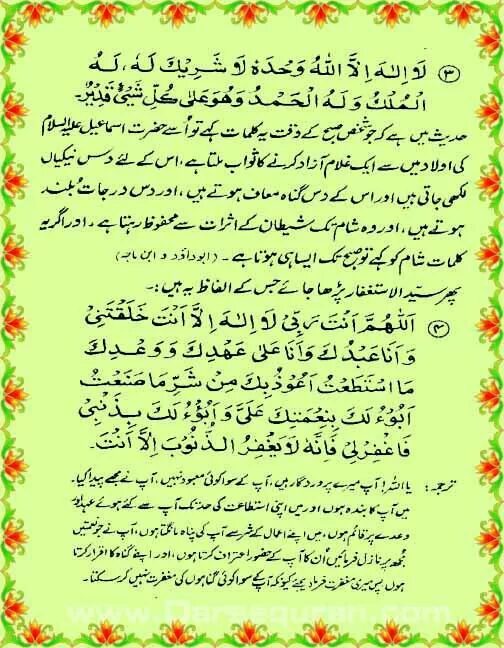 ③ لَا اِلٰهَ اِلَّا اللّٰهُ وَحْدَهٗ لَا شَرِيْكَ لَهٗ، لَهُ
الْمُلْكُ وَلَهُ الْحَمْدُ وَهُوَ عَلٰى كُلِّ شَيْئٍ قَدِيْرٌ۔
حدیث میں ہے کہ جو شخص صبح کے وقت یہ کلمات کہے تو اُسے حضرت اسماعیل علیہ السلام
کی اولاد میں سے ایک غلام آزاد کرنے کا ثواب ملتا ہے، اس کے لئے دس نیکیاں
لکھی جاتی ہیں اور اس کے دس گناہ معاف ہوتے ہیں، اور دس درجات بُلند
ہوتے ہیں، اور وہ شام تک شیطان کے اثرات سے محفوظ رہتا ہے۔ اور اگر یہ
کلمات شام کو کہے تو صبح تک ایسا ہی ہوتا ہے۔ (ابوداؤد و ابن ماجہ)
پھر سیّد الاستغفار پڑھا جائے جس کے الفاظ یہ ہیں:۔
④ اَللّٰهُمَّ اَنْتَ رَبِّيْ لَا اِلٰهَ اِلَّا اَنْتَ خَلَقْتَنِيْ
وَاَنَا عَبْدُكَ وَاَنَا عَلٰى عَهْدِكَ وَوَعْدِكَ
مَا اسْتَطَعْتُ اَعُوْذُ بِكَ مِنْ شَرِّ مَا صَنَعْتُ
اَبُوْءُ لَكَ بِنِعْمَتِكَ عَلَيَّ وَاَبُوْءُ لَكَ بِذَنْبِيْ
فَاغْفِرْلِيْ فَاِنَّهٗ لَا يَغْفِرُ الذُّنُوْبَ اِلَّا اَنْتَ۔
ترجمہ: یا اللہ! آپ میرے پروردگار ہیں، آپ کے سوا کوئی معبود نہیں، آپ نے مجھے پیدا کیا۔
میں آپ کا بندہ ہوں اور میں اپنی استطاعت کی حد تک آپ سے کئے ہوئے عہد اور
وعدے پر قائم ہوں، میں اپنے اعمال کے شر سے آپ کی پناہ مانگتا ہوں، آپ نے جو نعمتیں
مجھ پر نازل فرمائیں اُن کا آپ کے حضور اعتراف کرتا ہوں، اور اپنے گناہ کا اقرار کرتا
ہوں پس میری مغفرت فرما دیجئے کیونکہ آپ کے سوا کوئی گناہوں کی مغفرت نہیں کر سکتا۔
www.Darsequran.com